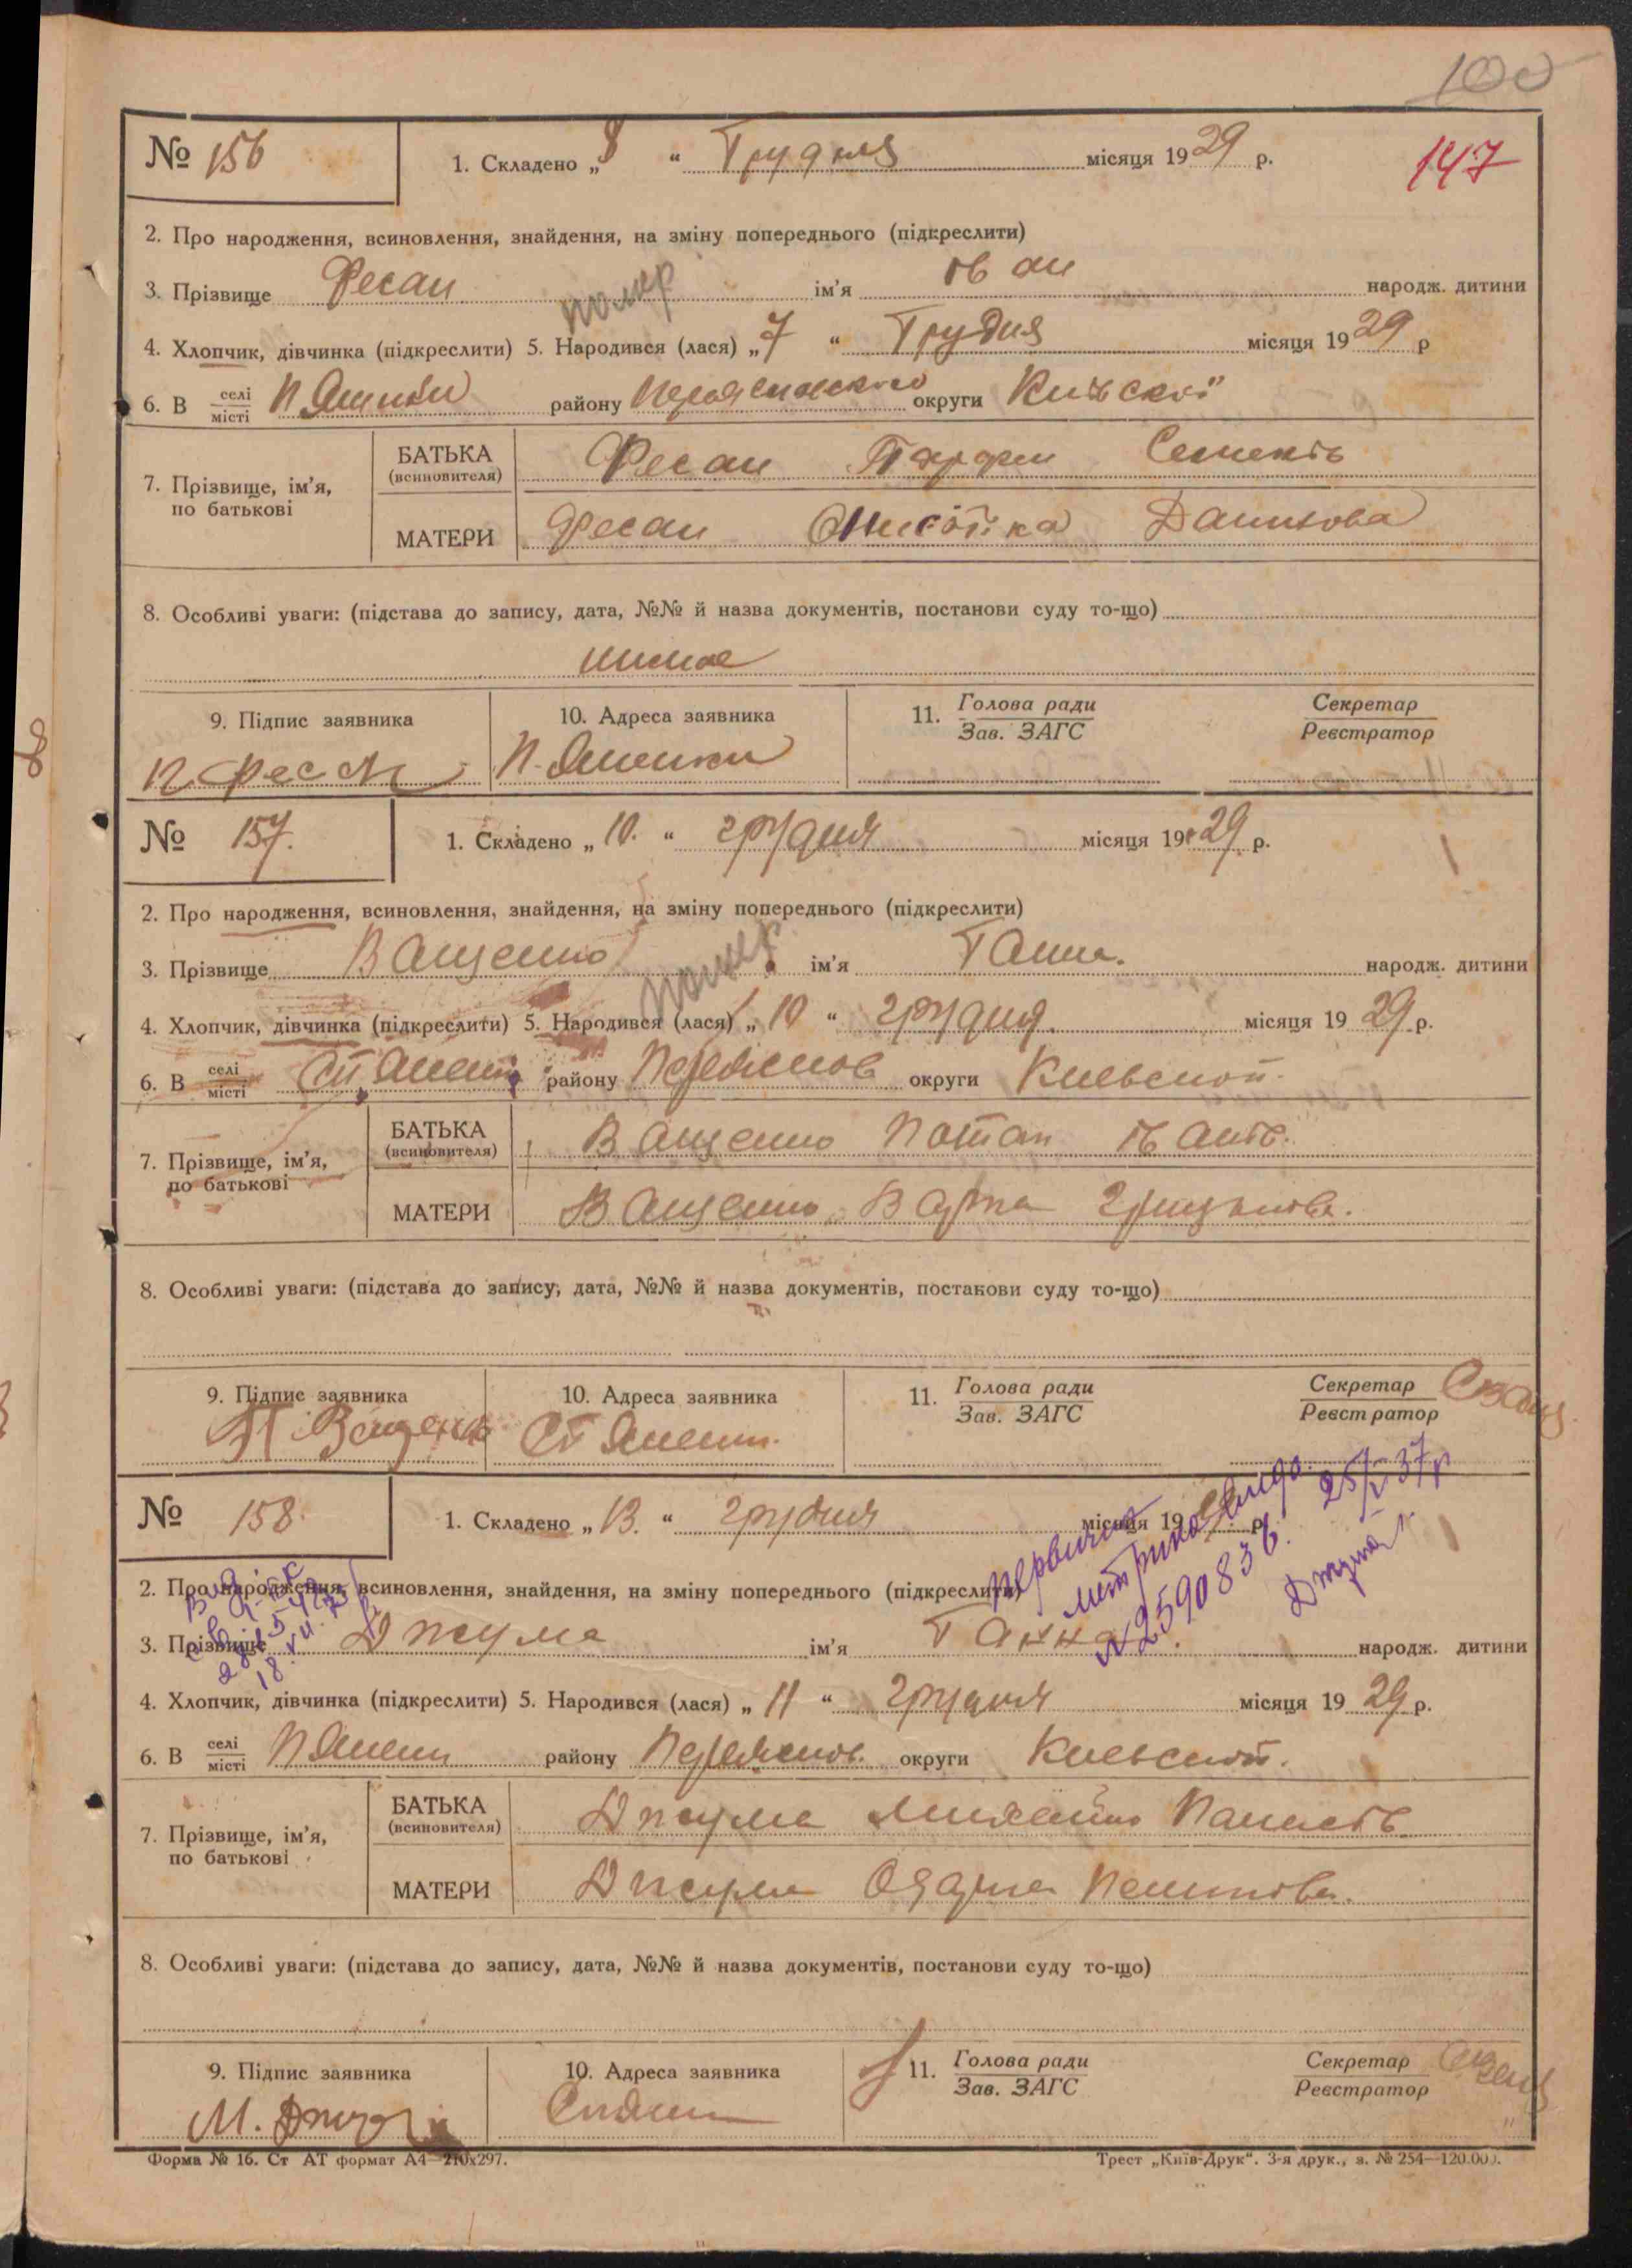 100
№ 156 1. Складено „ 8 “ Грудня місяця 19 29 р. 147
2. Про народження, всиновлення, знайдення, на зміну попереднього (підкреслити)
3. Прізвище Фесан помер ім'я Іван народж. дитини
4. Хлопчик, дівчинка (підкреслити) 5. Народився (лася) „ 7 “ Грудня місяця 19 29 р
6. В селі місті району округи
7. Прізвище, ім'я, по батькові
БАТЬКА (всиновителя) Фесан
МАТЕРИ Фесан Данилова
8. Особливі уваги: (підстава до запису, дата, №№ й назва документів, постанови суду то-що)
9. Підпис заявника 10. Адреса заявника 11. Голова ради Зав. ЗАГС Секретар Реєстратор
№ 157. 1. Складено „ 10. “ грудня місяця 19 29 р.
2. Про народження, всиновлення, знайдення, на зміну попереднього (підкреслити)
3. Прізвище Ващенко помер ім'я Ганна. народж. дитини
4. Хлопчик, дівчинка (підкреслити) 5. Народився (лася) „ 10 “ грудня. місяця 19 29 р.
6. В селі місті району округи Киевской.
7. Прізвище, ім'я, по батькові
БАТЬКА (всиновителя) Ващенко Потап Іван.
МАТЕРИ Ващенко Варка Грицькова.
8. Особливі уваги: (підстава до запису, дата, №№ й назва документів, постанови суду то-що)
9. Підпис заявника 10. Адреса заявника 11. Голова ради Зав. ЗАГС Секретар Реєстратор
П Ващенко
№ 158. 1. Складено „ 13. “ грудня місяця 19 29 р.
2. Про народження, всиновлення, знайдення, на зміну попереднього (підкреслити)
25/V-37р
№ 2590836.
3. Прізвище Джума ім'я Ганна. народж. дитини
4. Хлопчик, дівчинка (підкреслити) 5. Народився (лася) „ 11 “ грудня місяця 19 29 р.
6. В селі місті району округи Киевской.
7. Прізвище, ім'я, по батькові
БАТЬКА (всиновителя) Джума Михайло
МАТЕРИ Джума Одарка
8. Особливі уваги: (підстава до запису, дата, №№ й назва документів, постанови суду то-що)
9. Підпис заявника 10. Адреса заявника 11. Голова ради Зав. ЗАГС Секретар Реєстратор
М. Джу
Форма № 16. Ст АТ формат А4—210х297. Трест „Київ-Друк“. 3-я друк., з. № 254—120.000.